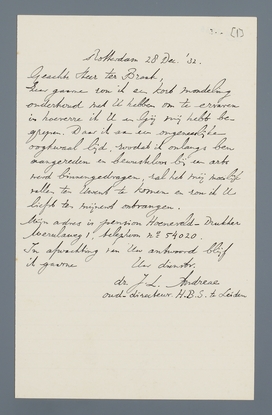 (1)
Rotterdam 28 Dec. '32.
Geachte Heer ter Braak,
Zeer gaarne zou ik een kort mondeling
onderhoud met U hebben om te ervaren
in hoeverre ik U en gij mij hebt be-
grepen. Daar ik aan een ongeneeslijke
oogkwaal lijd, zoodat ik onlangs ben
aangereden en bewusteloos bij een arts
werd binnengedragen, zal het mij moeilijk
vallen te Uwent te komen en zou ik U
liefst ten mijnent ontvangen.
Mijn adres is pension Hoeneveld-Drukker
1, telephoon no 54020.
In afwachting van Uw antwoord blijf
ik gaarne
Uw dienstv.
dr. J. L. Andreae
oud-directeur H.B.S. te Leiden